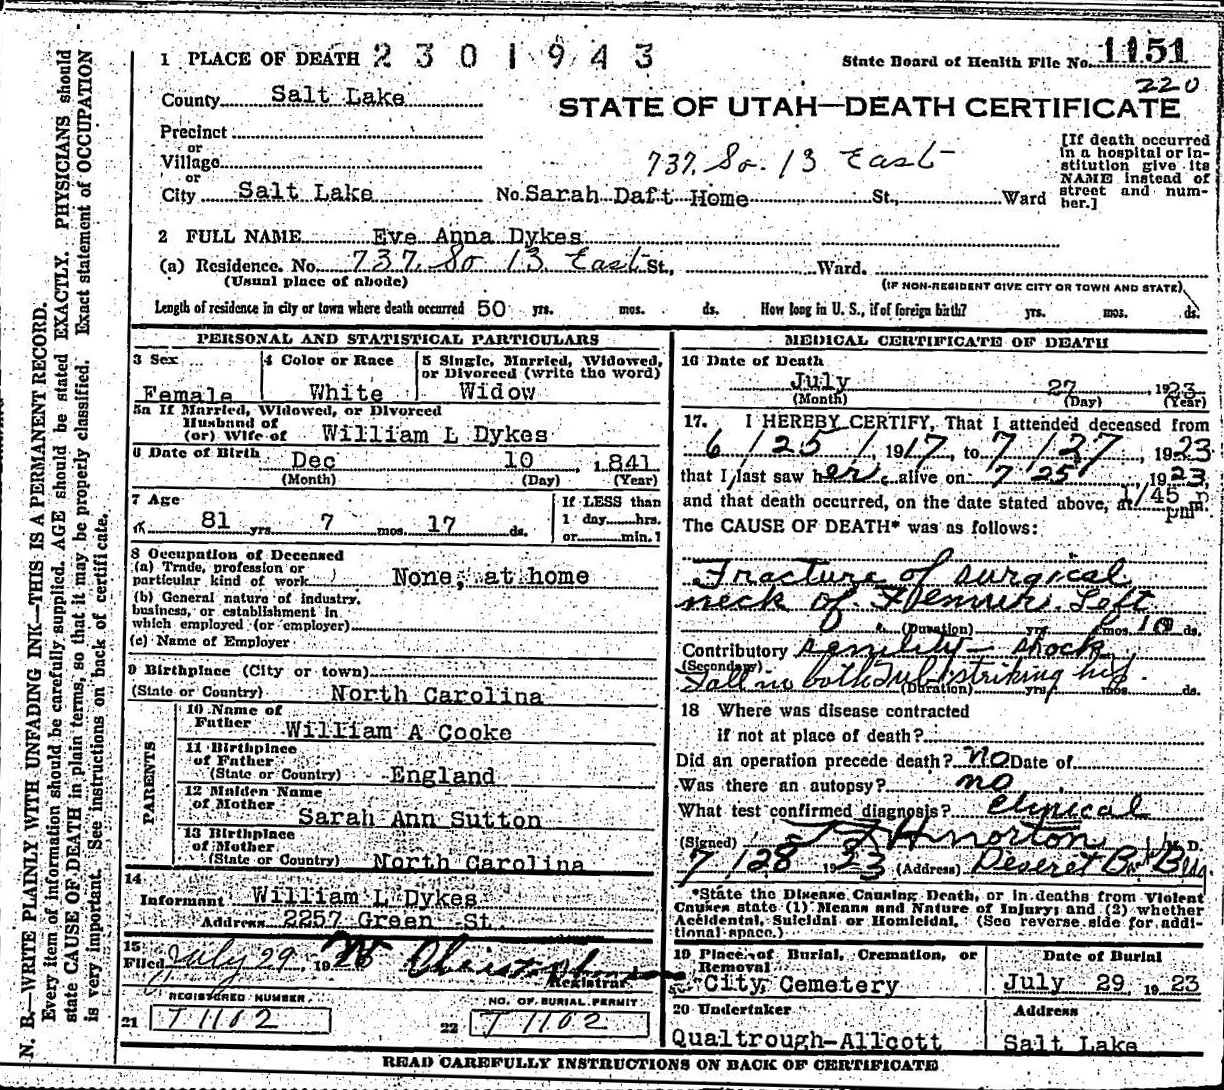 1 PLACE OF DEATH 2301943
State Board of Health File No. 1151
220
County Salt Lake
STATE OF UTAH—DEATH CERTIFICATE
Precinct
or
Village
or
737. So. 13 East
[If death occurred in a hospital or institution give its NAME instead of street and number.]
City Salt Lake No. Sarah Daft Home St., Ward
2 FULL NAME Eve Anna Dykes
(a) Residence. No. 737. So 13 East St., Ward.
(Usual place of abode) (IF NON-RESIDENT GIVE CITY OR TOWN AND STATE)
Length of residence in city or town where death occurred 50 yrs. mos. ds. How long in U. S., if of foreign birth? yrs. mos. ds.
PERSONAL AND STATISTICAL PARTICULARS
3 Sex
Female
4 Color or Race
White
5 Single, Married, Widowed,
or Divorced (write the word)
Widow
5a If Married, Widowed, or Divorced
Husband of
(or) Wife of William L Dykes
6 Date of Birth Dec 10, 1841
(Month) (Day) (Year)
7 Age
81 yrs. 7 mos. 17 ds.
If LESS than
1 day hrs.
or min.?
8 Occupation of Deceased
(a) Trade, profession or
particular kind of work None, at home
(b) General nature of industry,
business, or establishment in
which employed (or employer)
(c) Name of Employer
9 Birthplace (City or town)
(State or Country) North Carolina
PARENTS
10 Name of
Father William A Cooke
11 Birthplace
of Father
(State or Country) England
12 Maiden Name
of Mother
Sarah Ann Sutton
13 Birthplace
of Mother
(State or Country) North Carolina
14
Informant William L Dykes
Address 2257 Green St.
15
Filed July 29, 19
Registrar
REGISTERED NUMBER
21 T 1102
NO. OF BURIAL PERMIT
22 T 1102
MEDICAL CERTIFICATE OF DEATH
16 Date of Death
July 27 1923
(Month) (Day) (Year)
17. I HEREBY CERTIFY, That I attended deceased from
6/25/, 1917, to 7/27, 1923
that I last saw her alive on 7/25, 1923,
and that death occurred, on the date stated above, at 1/45 p m.
The CAUSE OF DEATH* was as follows:
Fracture of surgical
neck of Femur. Left
(Duration) yrs. mos. 10 ds.
Contributory senility - shock
(Secondary)
Fall in bath Tub striking hip.
(Duration) yrs. mos. ds.
18 Where was disease contracted
if not at place of death?
Did an operation precede death? no Date of
Was there an autopsy? no
What test confirmed diagnosis? Clinical
(Signed) Morton M. D.
7/28 1923 (Address) Deseret Bk Bldg.
*State the Disease Causing Death, or in deaths from Violent
Causes state (1) Means and Nature of Injury; and (2) whether
Accidental, Suicidal or Homicidal. (See reverse side for addi-
tional space.)
19 Place of Burial, Cremation, or
Removal
City Cemetery
Date of Burial
July 29 1923
20 Undertaker
Qualtrough-Allcott
Address
Salt Lake
READ CAREFULLY INSTRUCTIONS ON BACK OF CERTIFICATE
N. B.—WRITE PLAINLY WITH UNFADING INK—THIS IS A PERMANENT RECORD.
Every item of information should be carefully supplied. AGE should be stated EXACTLY. PHYSICIANS should
state CAUSE OF DEATH in plain terms, so that it may be properly classified. Exact statement of OCCUPATION
is very important. See instructions on back of certificate.